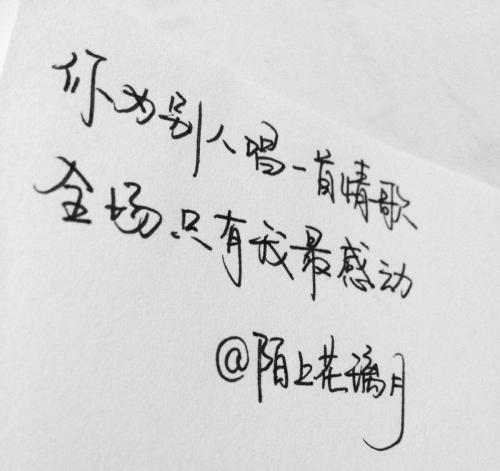 你为别人唱一首情歌
全场只有我最感动
@陌上花漓月